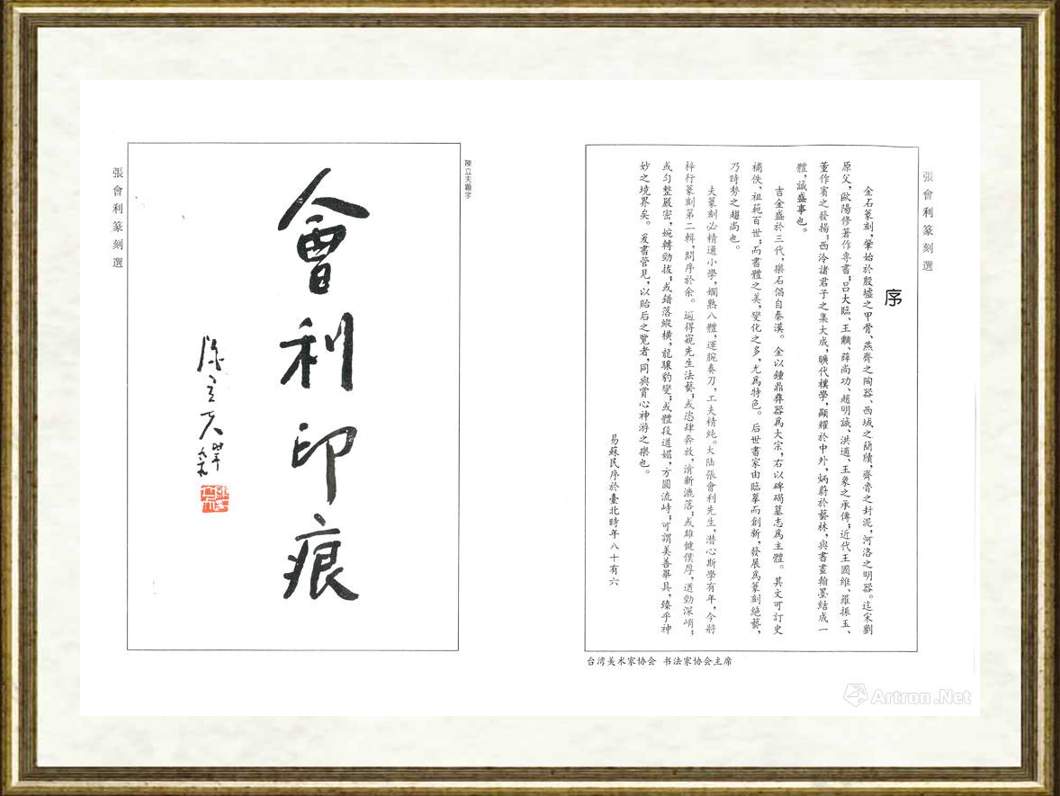 張會利篆刻選
序
金石篆刻，肇始於殷墟之甲骨、燕齊之陶器、西域之簡牘，齊魯之封泥，河洛之明器。迄宋劉
原父，歐陽修著作專書，呂大臨、王黼、薛尚功、趙明誠、洪適、王象之承傳，近代王國維、羅振玉、
董作賓之發揚，西泠諸君子之集大成，曠代樸學，顯耀於中外，炳蔚於藝林，與書畫翰墨結成一
體，誠盛事也。
吉金盛於三代，樂石倡自秦漢。金以鐘鼎彝器爲大宗，右以碑碣墓志爲主體。其文可訂史
補佚，祖範百世，而書體之美，變化之多，尤爲特色。后世書家由臨摹而創新，發展爲篆刻絶藝，
乃時勢之趨尚也。
夫篆刻必精通小學，嫻熟八體，運腕奏刀，工夫精純。大陸張會利先生，潜心斯學有年，今將
梓行篆刻第二輯，問序於余。逅得窥先生法藝，或恣肆奔放，清新灑落；或雄健僕厚，遒勁深峭；
或勻整嚴密，婉轉勁拔；或錯落縱橫，龍驤豹變；或體段遒媚，方圓流峙，可謂美善畢具，臻乎神
妙之境界矣。爰書管見，以貽后之覽者，同與賞心神游之樂也。
易蘇民序於臺北時年八十有六
台湾美术家协会 书法家协会主席
陳立夫題字
會利印痕
陳立夫
時年九九
張會利篆刻選
Artron.Net